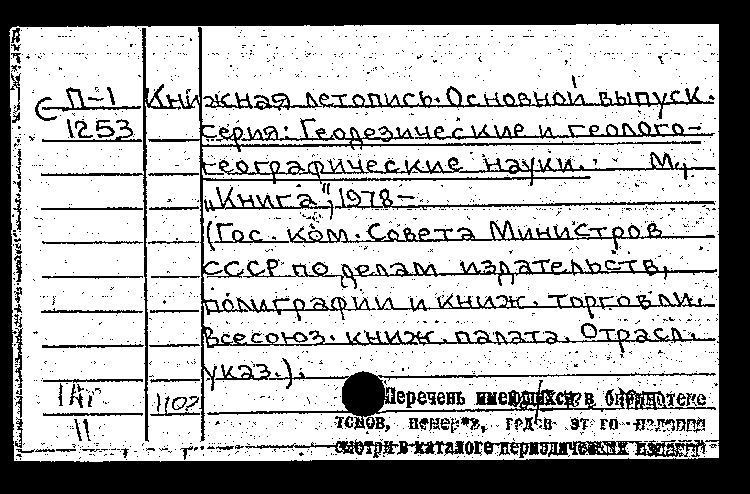 С П-1 Книжная летопись. Основной выпуск.
1253 серия: Геодезические и геолого-
географические науки. М.,
„Книга", 1978 –
(Гос. ком. Совета Министров
СССР по делам издательств,
полиграфии и книж. торговли.
Всесоюз. книж. палата. Отрасл.
указ.).
1102 Перечень имеющихся в библиотеке
11 томов, номеров, годов этого издания
смотри в каталоге периодических изданий